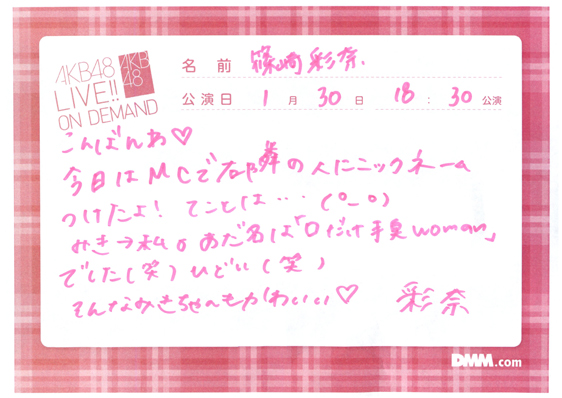 AKB48
LIVE!!
ON DEMAND
AKB
48
名前 篠崎彩奈.
公演日 1月30日 18:30公演
こんばんわ♡
今日はMCで右隣の人にニックネーム
つけたよ! てことは… (°_°)
みき→私のあだ名は「口だけ手臭woman」
でした(笑)ひどい(笑)
そんなみきちゃんもかわいい♡ 彩奈
DMM.com